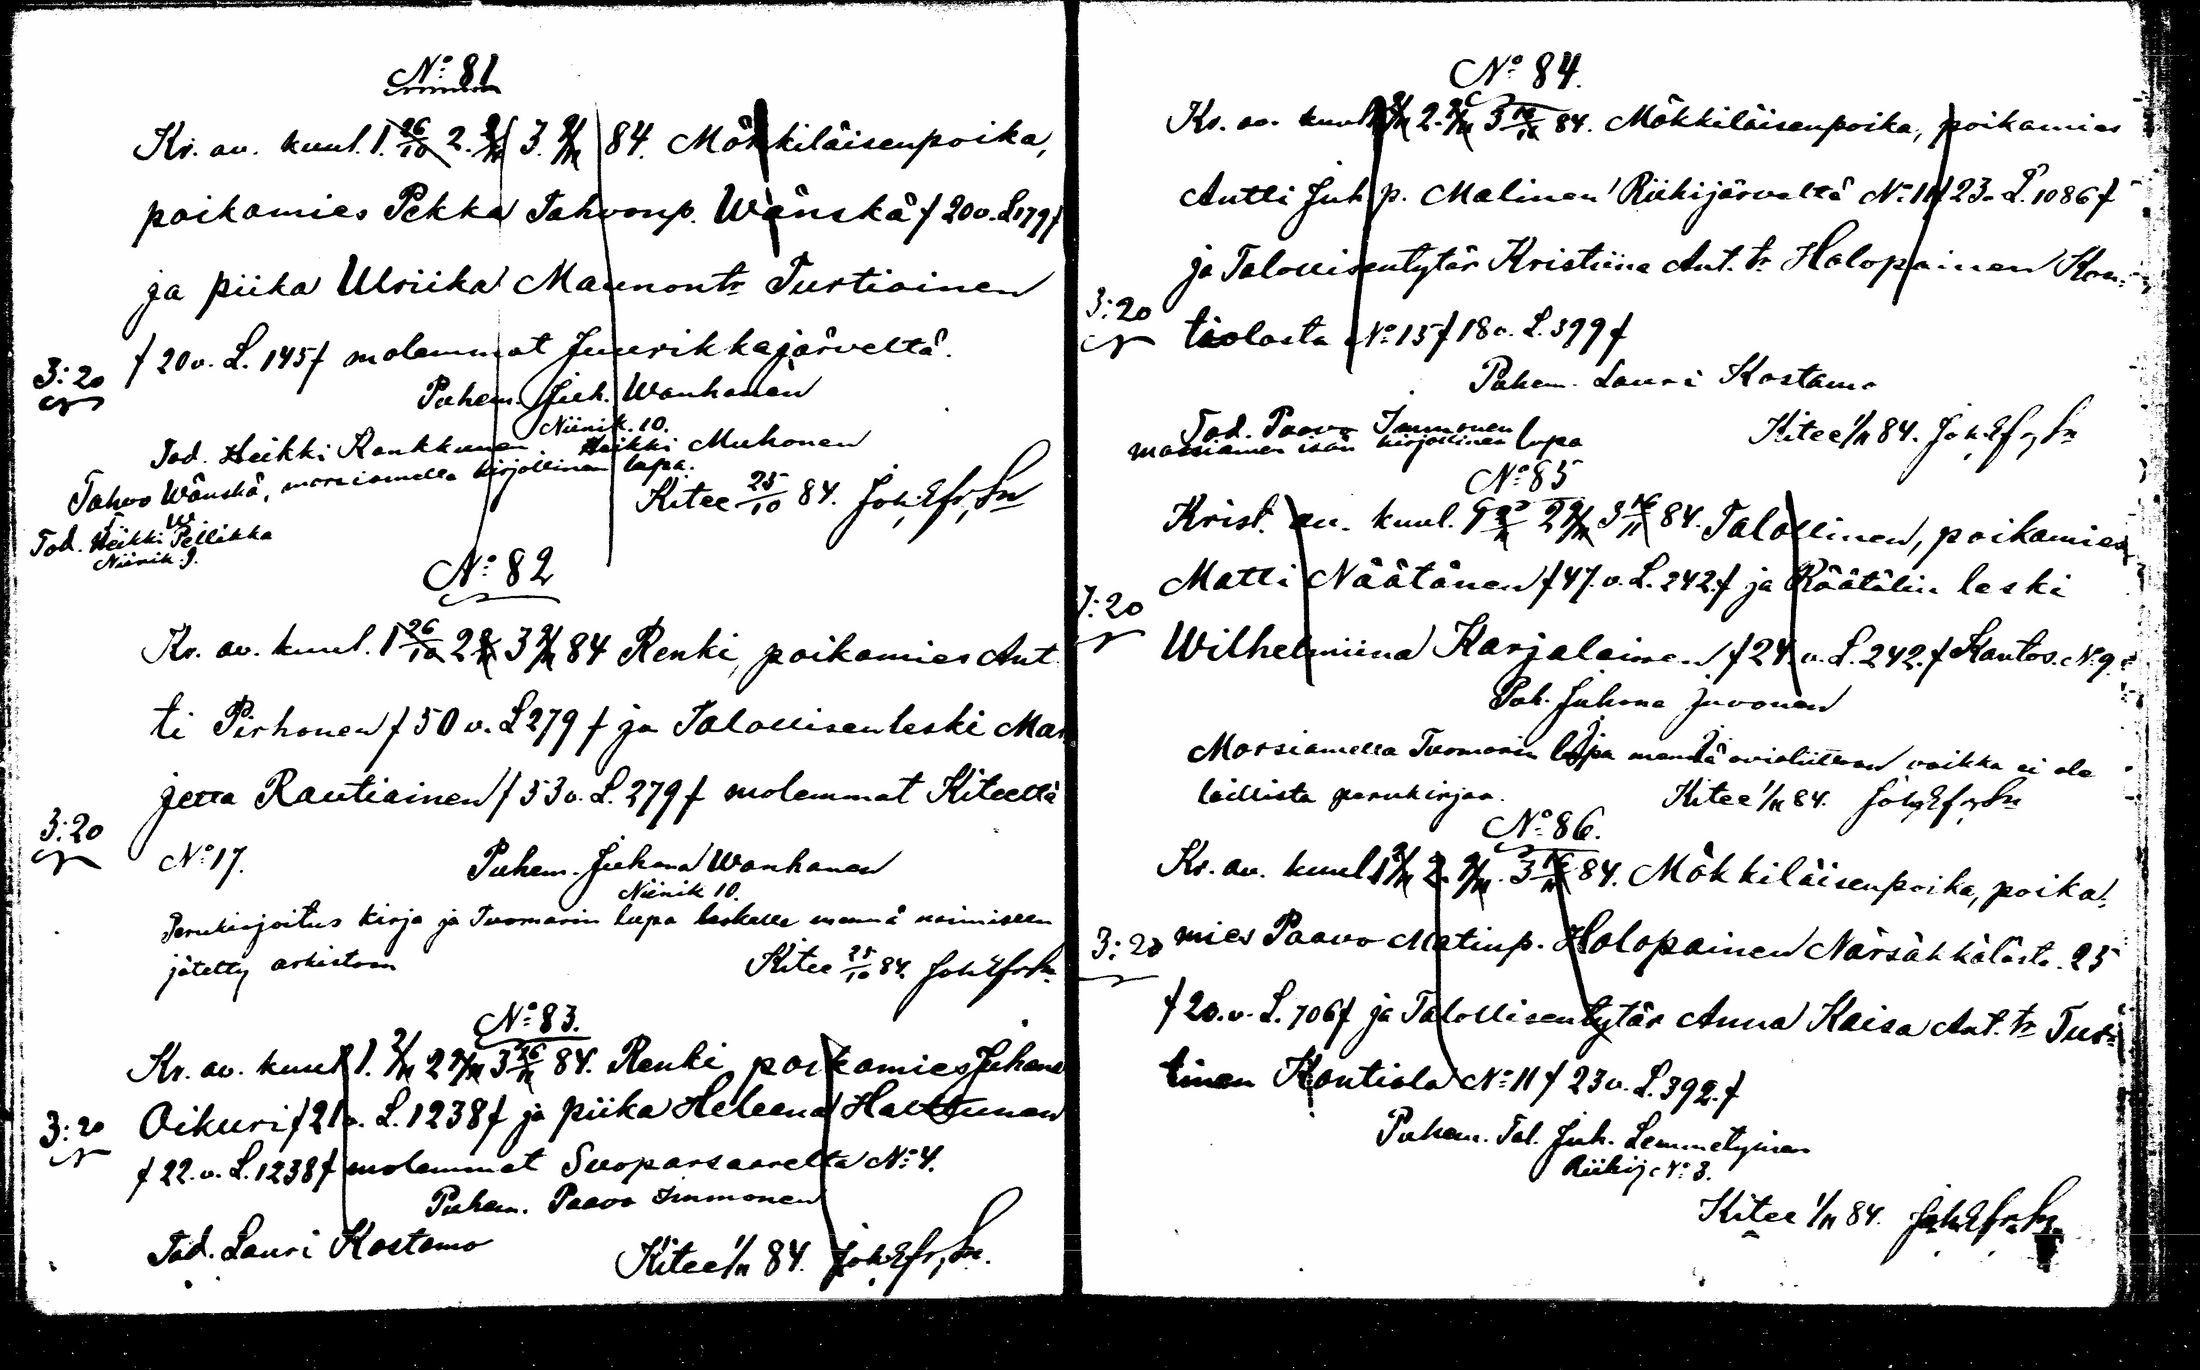 No 81
Kr. av. kuul. 1. 26/10 2. 2/11 3. 9/11 84. Mökkiläisenpoika,
poikamies Pekka Tahvonp. Wänskä f 20 v. L 179 f
ja piika Ulriika Maunontr Turtiainen
f 20 v. L. 145 f molemmat Juurikkajärveltä.
3:20
Puhem. Juh. Wanhanen
Niinik. 10.
Tod. Heikki Ronkkunen Heikki Muhonen
Tahvo Wänskä, morsiamella kirjallinen lupa.
Kitee 25/10 84. Joh. Efr. Sn
Tod. Heikki Pellikka
Niinik 9.
No 82
Kr. av. kuul. 1 26/10 2 2/11 3 9/11 84 Renki, poikamies Ant
ti Pirhonen f 50 v. L 279 f ja Talollisenleski Mar
jetta Rautiainen f 53 v. L. 279 f molemmat Kiteeltä
3:20
No 17. Puhem. Juhana Wanhanen
Niinik 10.
Perukirjoitus kirja ja Tuomarin lupa leskelle mennä naimiseen
jätetty arkistoon Kitee 25/10 84. Joh Efr Sn
No 83.
Kr. av. kuul 1. 2/11 2 9/11 3 16/11 84. Renki poikamies Juhana
3:20 Oikuri f 21 v. L. 1238 f ja piika Heleena
f 22. v. L. 1238 f molemmat Suoparsaarelta No 4.
Puhem. Paavo Immonen
Tod. Lauri Kostamo
Kitee 1/11 84. Joh Efr, Sn.
No 84.
Kr. av. kuul 1 2/11 2. 9/11 3 16/11 84. Mökkiläisenpoika, poikamies
Antti Juh p. Malinen Riihijärveltä No 11 f 23 v. L. 1086 f
ja Talollisentytär Kristiina Ant. tr Holopainen Kon-
3:20
tiolasta No 15 f 18 v. L. 399 f
Puhem. Lauri Kostamo
Tod. Paavo Immonen
morsiamen isän kirjallinen lupa
Kitee 1/11 84. Joh. Efr, Sn
No 85
Krist. au. kuul. 1 2/11 2 9/11 3 16/11 84. Talollinen, poikamies
Matti Näätänen f 47. v. L. 242. f ja Räätälin leski
7:20
Wilhelmiina Karjalainen f 24. v. L. 242. f Kantos. No 9.
Puh. Juhana Juvonen
Morsiamella Tuomarin lupa mennä avioliittoon vaikka ei ole
laillista perukirjaa. Kitee 1/11 84. Joh, Efr, Sn
No 86.
Kr. au. kuul. 1 2/11 2. 9/11. 3 16/11 84. Mökkiläisenpoika, poika-
3:20 mies Paavo Matinp. Holopainen Närsäkkälästä. 25
f 20. v. L. 706 f ja Talollisentytär Anna Kaisa Ant. tr Tur-
tinen Kontiola No 11 f 23 v. L. 392. f
Puhem. Tal. Juh. Lemmetyinen
Riihij No 3.
Kitee 1/11 84. Joh. Efr. Sn